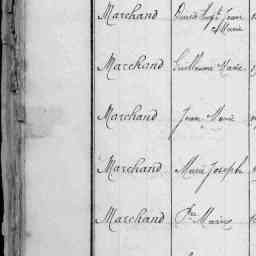 Marchand Jean
Marie
Marchand Guillaume Marie
Marchand Jean Marie
Marchand Marie Joseph
Marchand Marie